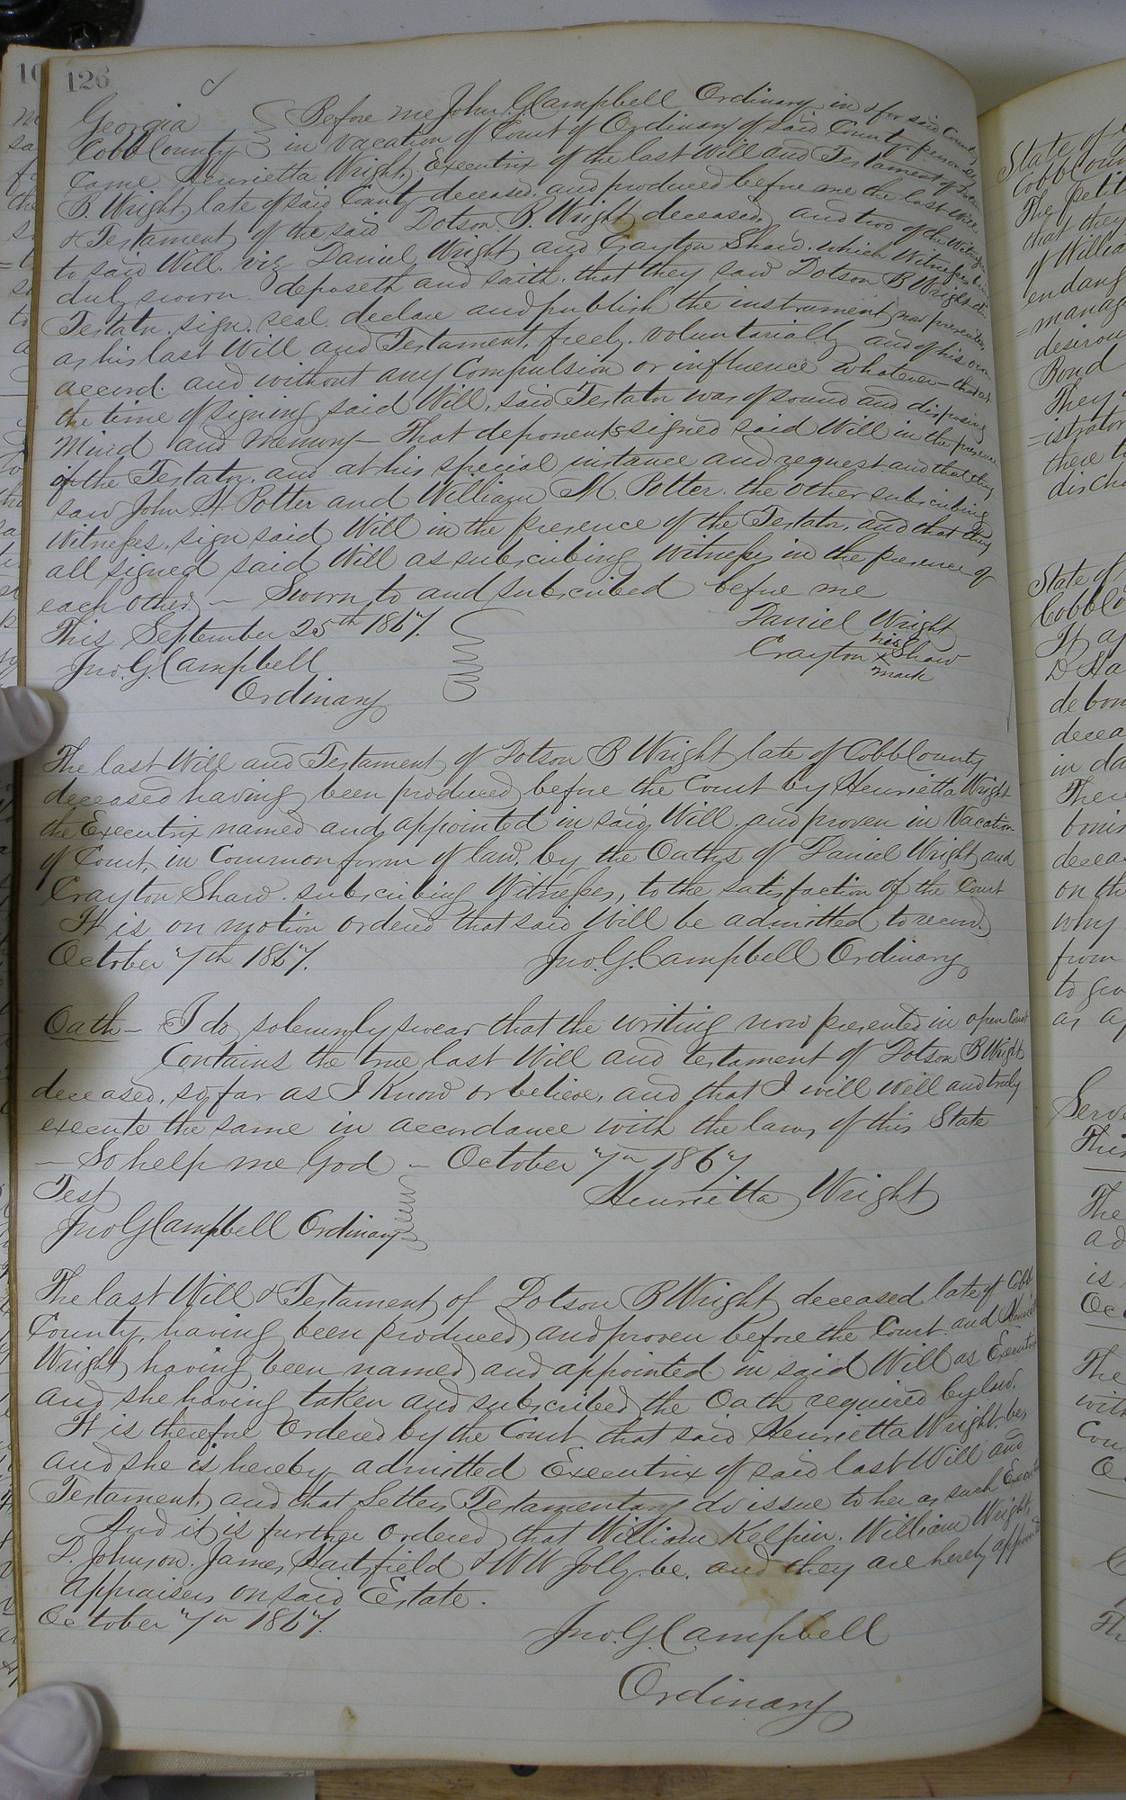 126
Georgia Before me John G Campbell Ordinary in & for said County
Cobb County in vacation of Court of Ordinary of said County personally
Came Henrietta Wright, Executrix of the last Will and Testament of Dotson
B. Wright, late of said County deceased, and produced before me the last Will
& Testament of the said Dotson B. Wright deceased, and two of the Witnesses
to said Will. viz Daniel Wright and Crayton Shaw. which Witnesses being
duly sworn deposeth and saith, that they saw Dotson B Wright
Testator. sign. seal. declare and publish the instrument now presented,
as his last Will and Testament. freely. voluntarially and of his own
accord. and without any Compulsion or influence whatever – that at
the time of signing said Will, said Testator was of sound and disposing
Mind and Memory – That deponents signed said Will in the presence
of the Testator, and at his special instance and request and that they
saw John H Potter and William M. Potter. the other subscribing
Witnesses. sign said Will in the presence of the Testator, and that they
all signed said Will as subscribing Witnesses in the presence of
each other – Sworn to and subscribed before me
This September 25th 1867.
Daniel Wright
Crayton his x mark Shaw
Jno. G. Campbell
Ordinary
The last Will and Testament of Dotson B Wright late of Cobb County
deceased having been produced before the Court by Henrietta Wright
the Executrix named and appointed in said Will, and proven in Vacation
of Court, in Common form of law. by the Oaths of Daniel Wright and
Crayton Shaw. subscribing Witnesses, to the satisfaction of the Court
It is on motion ordered that said Will be admitted to record
October 7th 1867. Jno. G. Campbell Ordinary
Oath – I do solemnly swear that the writing now presented in open Court
Contains the true last Will and testament of Dotson B Wright
deceased. so far as I Know or believe, and that I will well and truly
execute the same in accordance with the laws of this State
– So help me God – October 7th 1867
Test Henrietta Wright
Jno G Campbell Ordinary
The last Will & Testament of Dotson B Wright deceased late of Cobb
County, having been produced and proven before the Court. and
Wright having been named and appointed in said Will as
and she having taken and subscribed the Oath required by law.
It is therefore Ordered by the Court that said Henrietta Wright. be,
and she is hereby admitted Executrix of said last Will and
Testament, and that Letters Testamentary do issue to her as such
And it is further ordered that William Kelpin. William Wright,
Johnson. James Hartsfield & W W Jolly. be, and they are hereby
Appraisers on said Estate.
October 7th 1867.
Jno. G. Campbell
Ordinary
State of
The
that they
of
manag
desirou
Bond
They
istrator
there to
discha
State of
It
D
de bon
decea
in
There
bonis
decea
on the
why
from
to
as
Serv
The
is
The
with